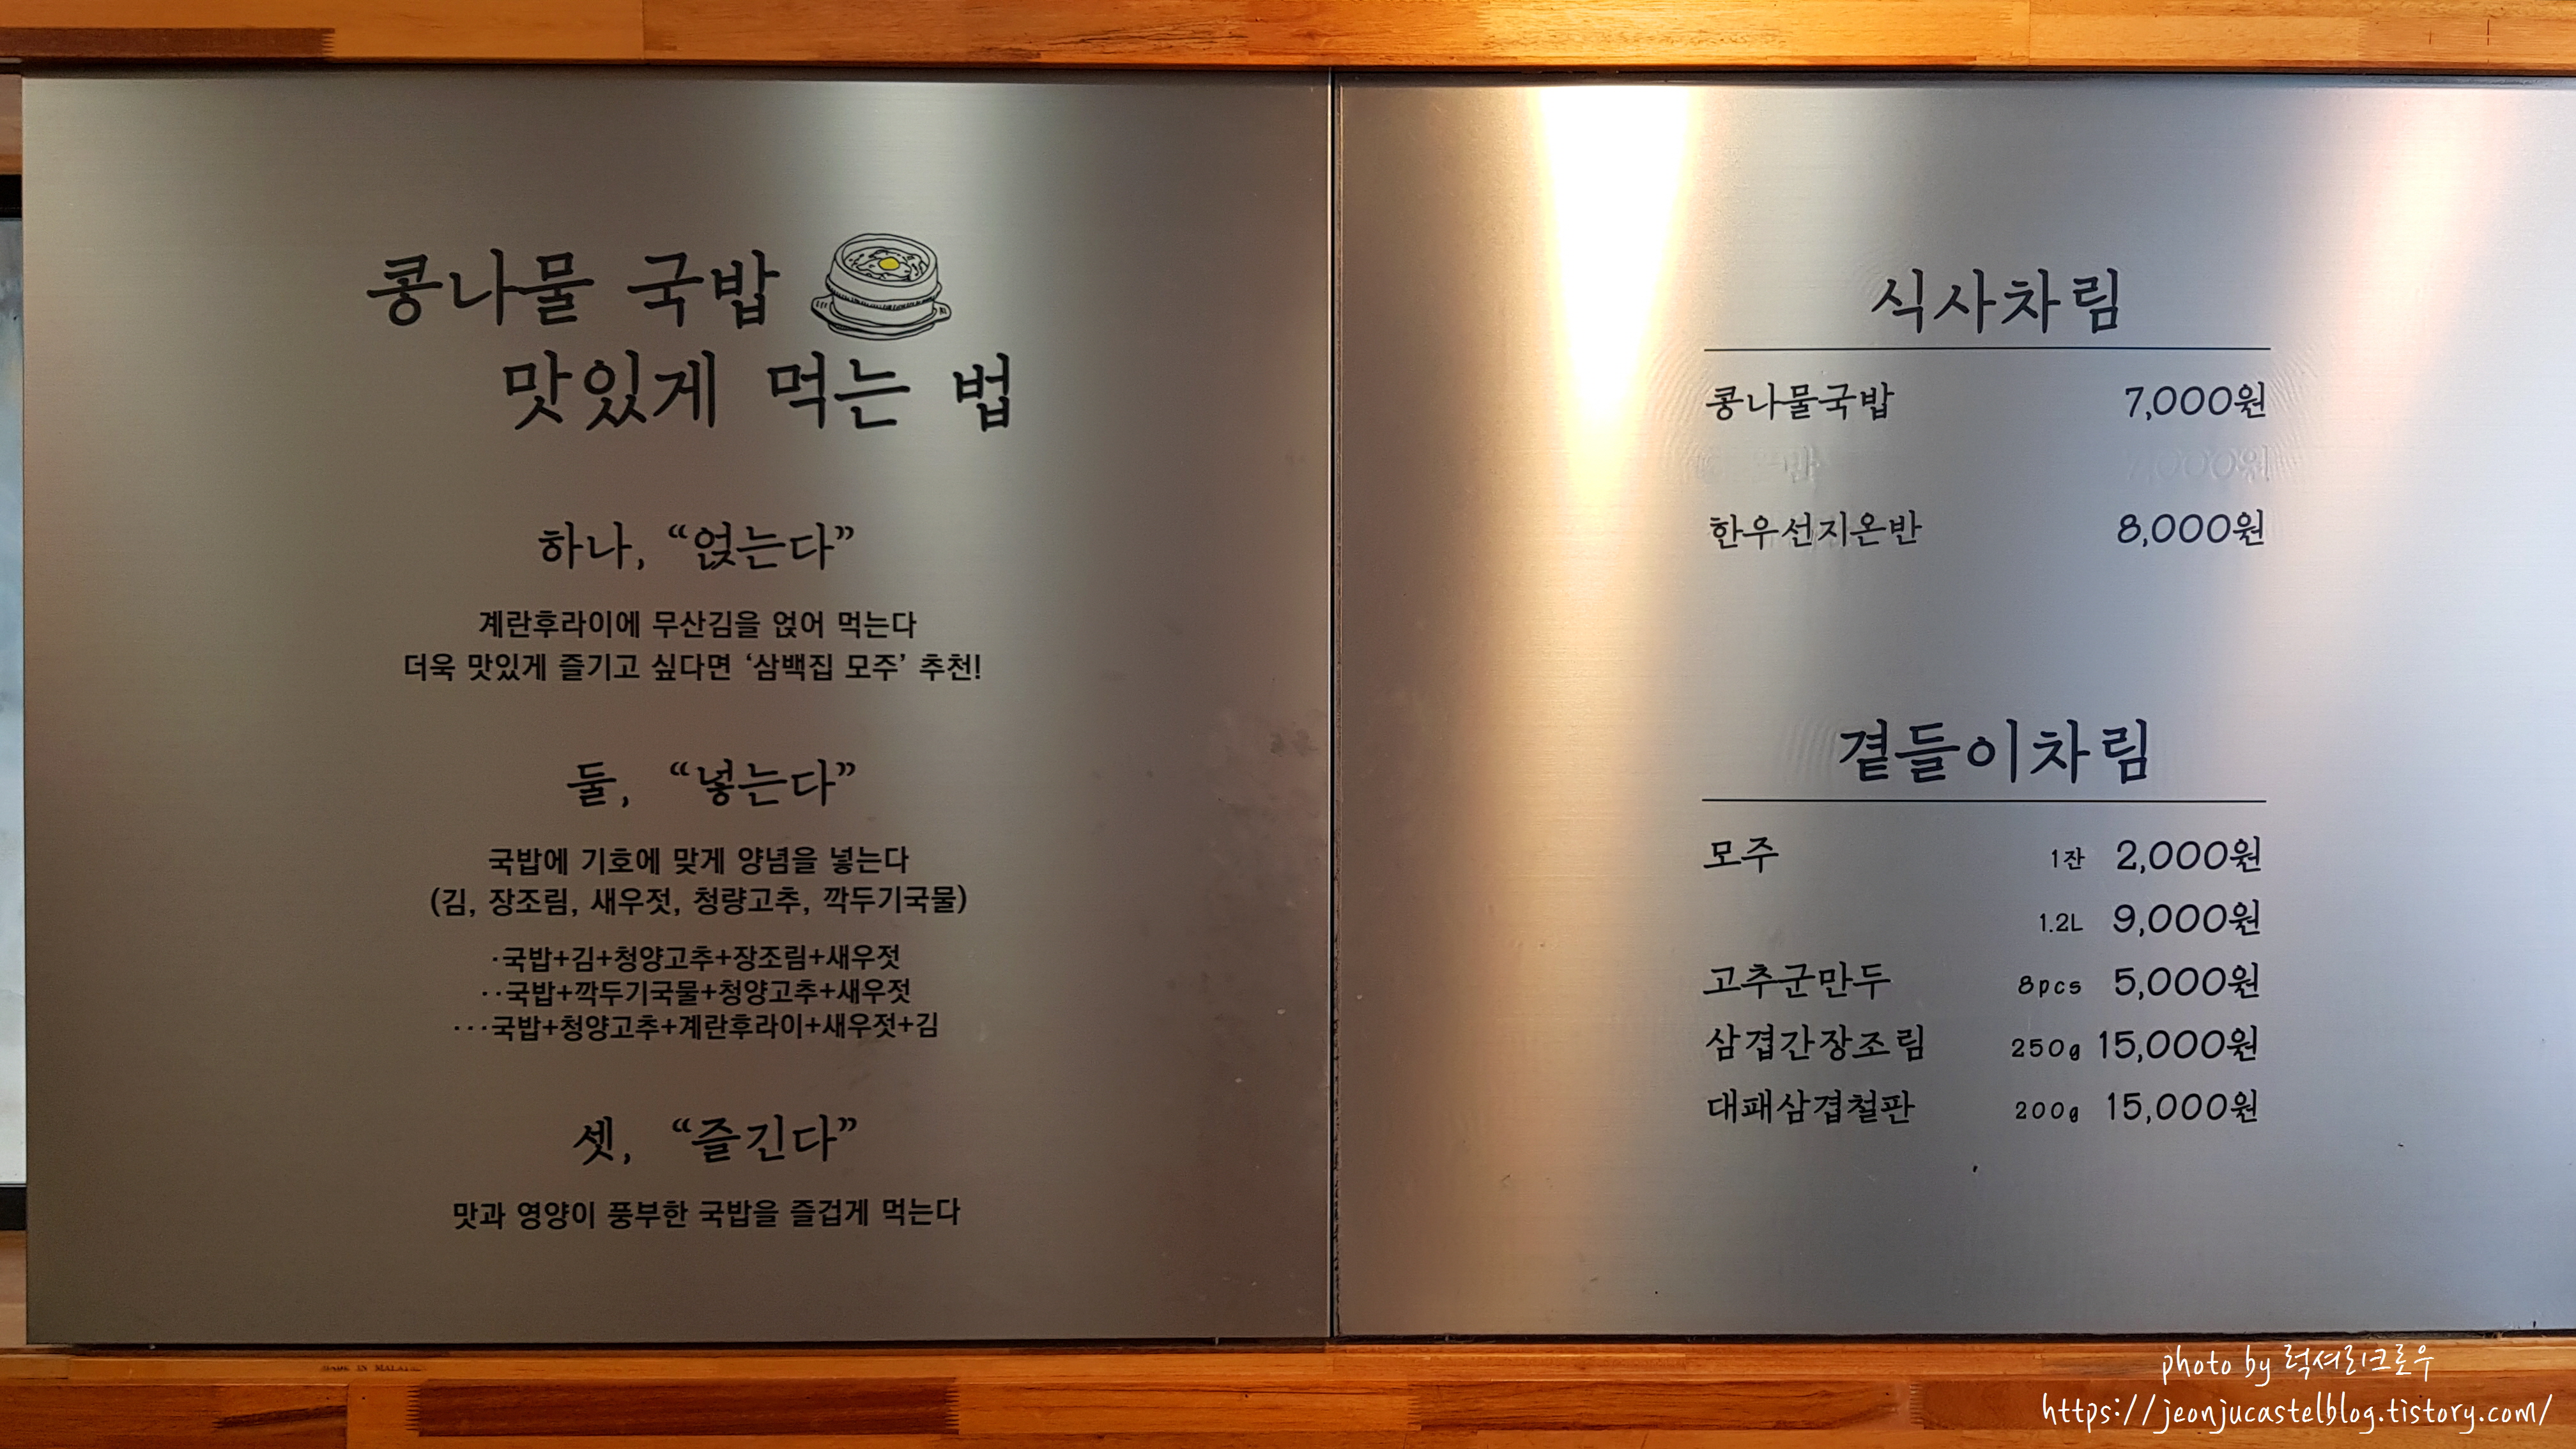 콩나물 국밥
맛있게 먹는 법
하나, “얹는다”
계란후라이에 무산김을 얹어 먹는다
더욱 맛있게 즐기고 싶다면 ‘삼백집 모주’ 추천!
둘, “넣는다”
국밥에 기호에 맞게 양념을 넣는다
(김, 장조림, 새우젓, 청량고추, 깍두기국물)
·국밥+김+청양고추+장조림+새우젓
··국밥+깍두기국물+청양고추+새우젓
···국밥+청양고추+계란후라이+새우젓+김
셋, “즐긴다”
맛과 영양이 풍부한 국밥을 즐겁게 먹는다
식사차림
콩나물국밥 7,000원
7,000원
한우선지온반 8,000원
곁들이차림
모주 1잔 2,000원
1.2L 9,000원
고추군만두 8pcs 5,000원
삼겹간장조림 250g 15,000원
대패삼겹철판 200g 15,000원
MADE IN
photo by 럭셔리크로우
https://jeonjucastelblog.tistory.com/